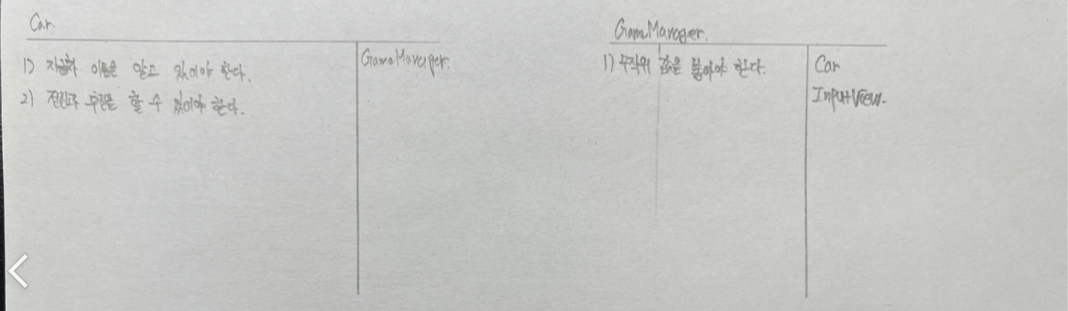 Car.
1) 자동차 이름은 알고 있어야 한다.
2) 전진과 후진을 할 수 있어야 한다.
GameManager.
GameManager.
1) 무작위 값을 뽑아야 한다.
Car
InputView.